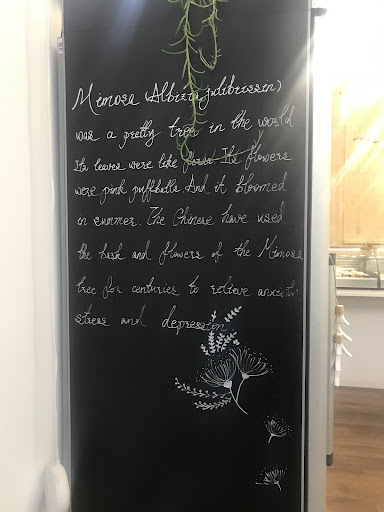 Mimosa (Albizia julibrissin)
was a pretty tree in the world
Its leaves were like Its flowers
were pink puffballs And it bloomed
in summer. The Chinese have used
the bark and flowers of the Mimosa
tree for centuries to relieve anxiety
stress and depression